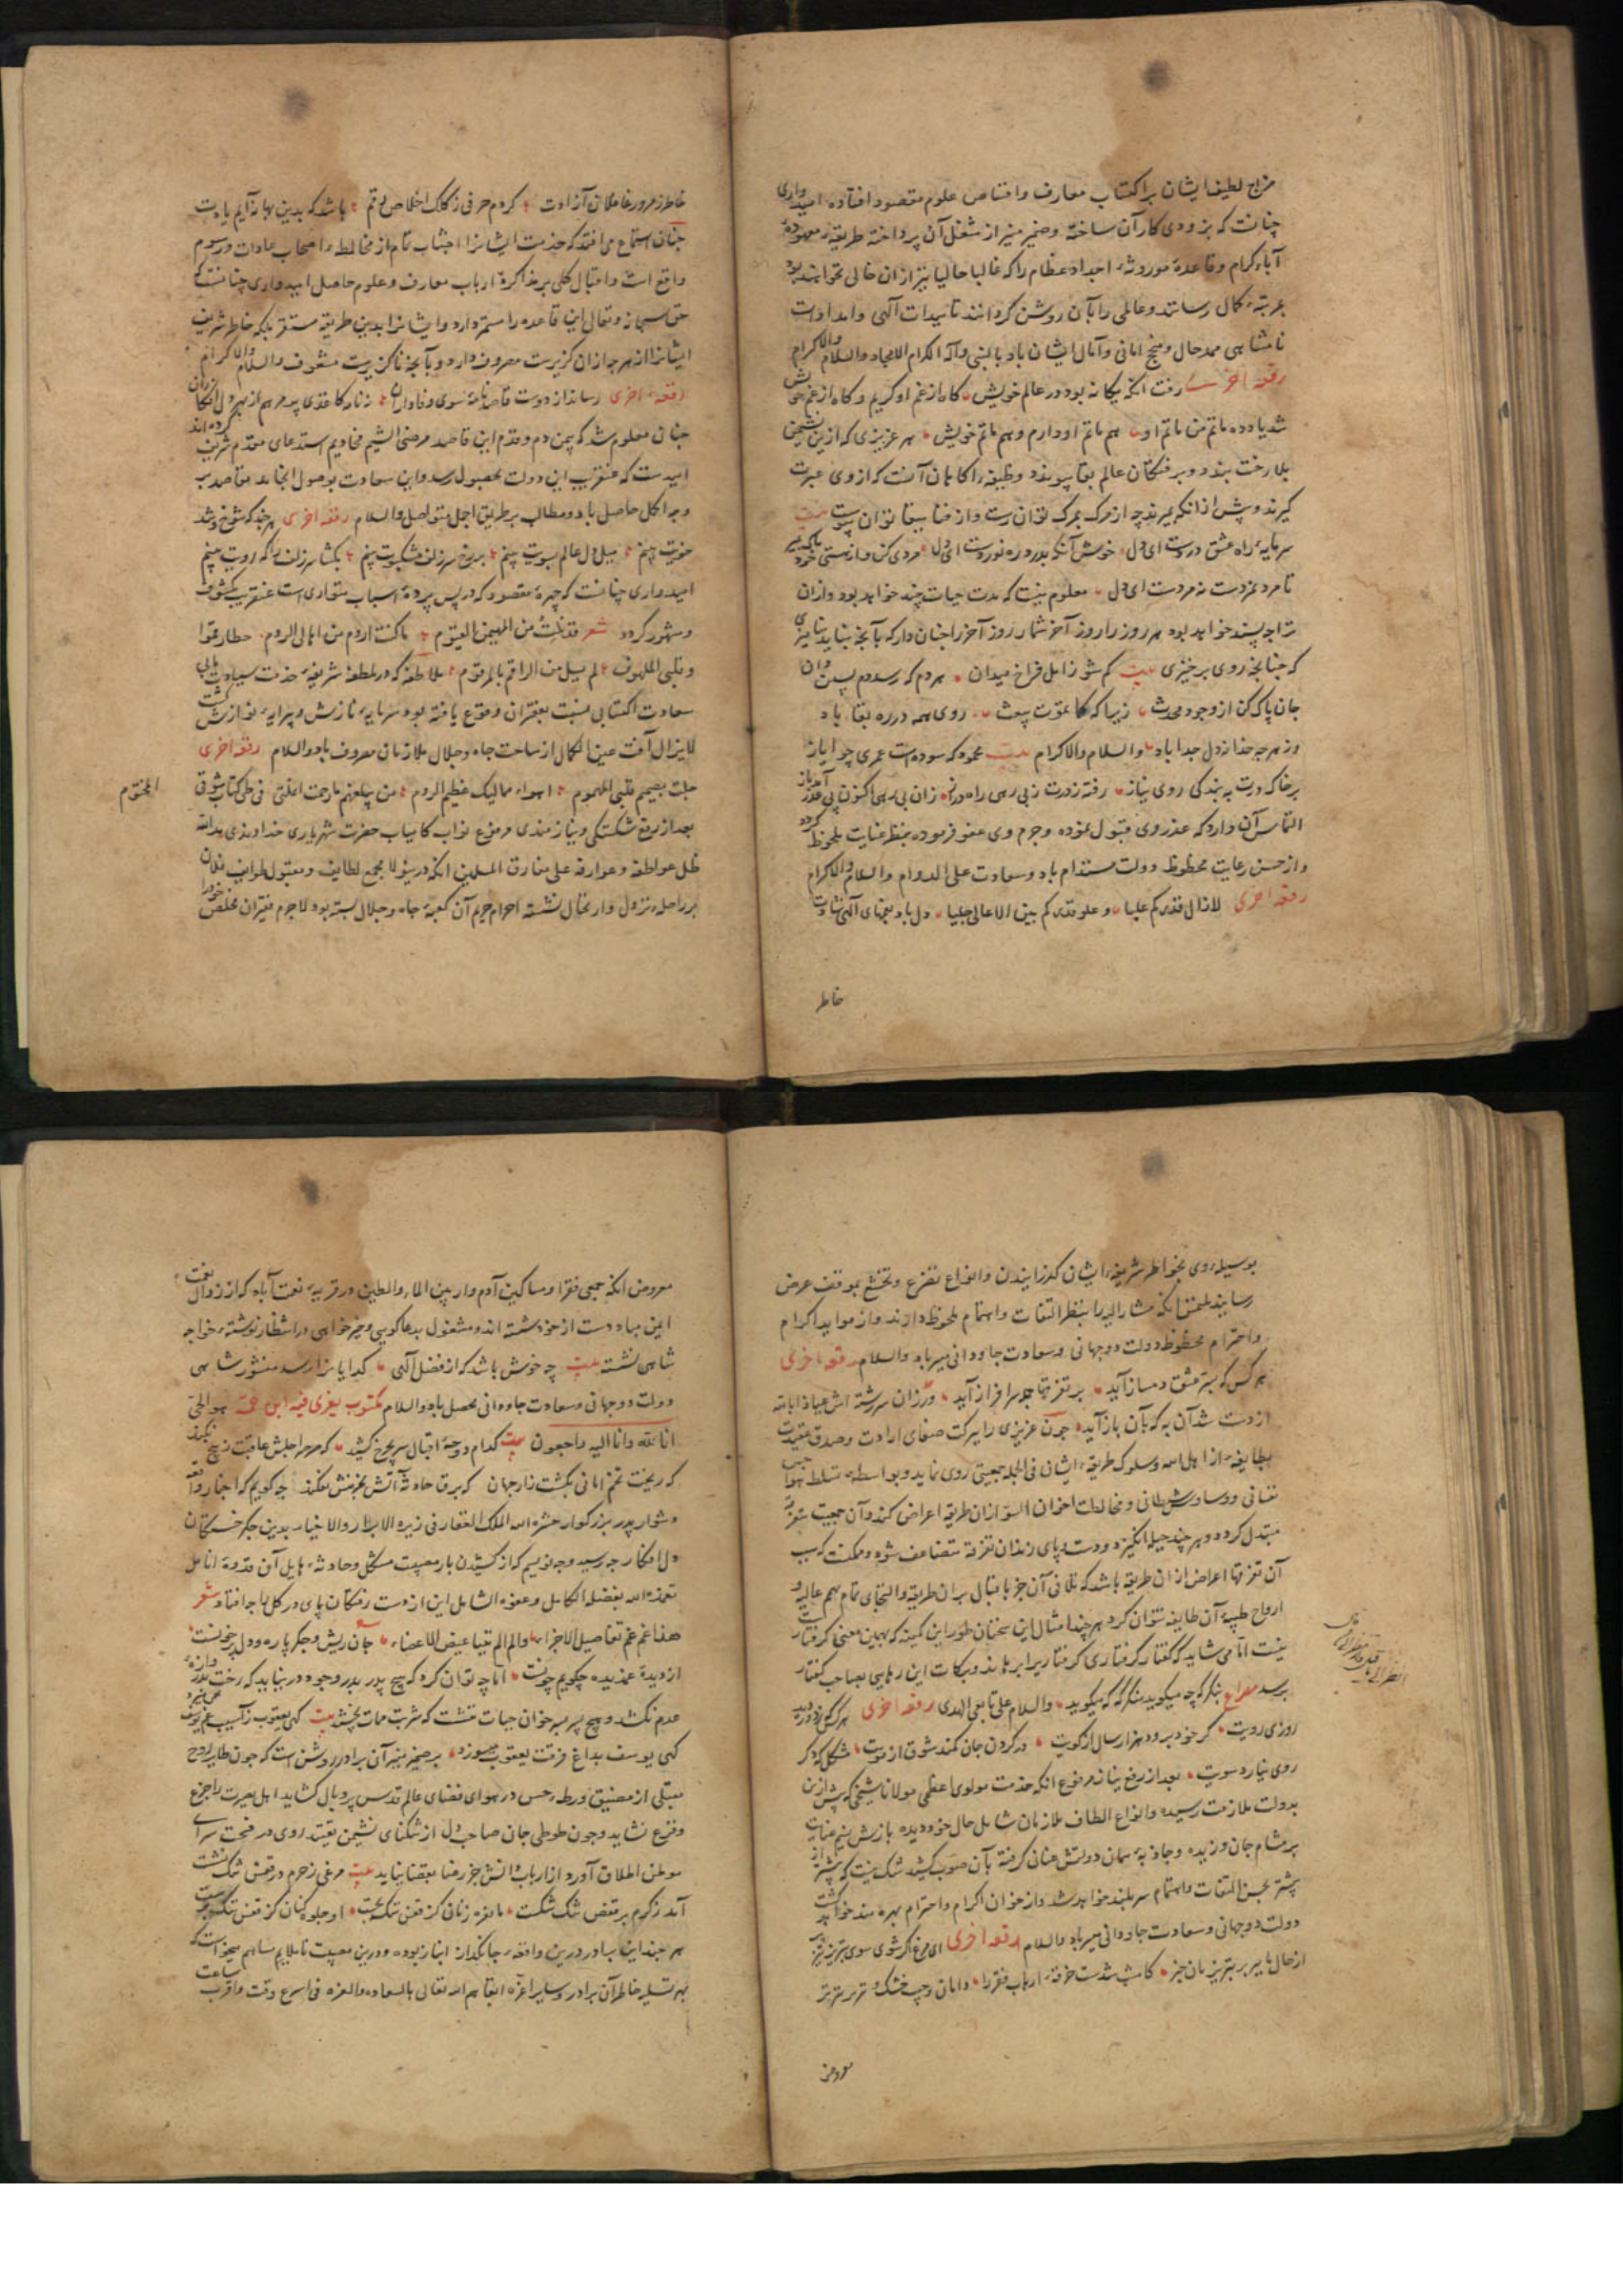 مزاج لطیف ایشان براکتساب معارف واقتناص علوم مقصود افتاده امیدواری
چنانست که بزودی کار آن ساخته وضمیر منیر از شغل آن پرداخته طریقه معهوده
آباء کرام وقاعدهٔ موروثهٔ اجداد عظام را که غالبا حالیا نیز ازان خالی نخواهند بود
بمرتبهٔ کمال رسانند وعالمی را بآن روشن کردانند تاییدات آلهی وامدادات
نامتناهی ممد حال ومنجح امانی وآمال ایشان باد بالنبی وآله الکرام الامجاد والسلام والاکرام
رقعه اخری رفت انکه یکانه بود در عالم خویش کاه از غم او کریم وکاه از غم خویش
شد یاد ده ماتم من ماتم او هم ماتم او دارم وهم ماتم خویش هر عزیزی که ازین نشیمن
بلا رخت بندد وبرفتکان عالم بقا پیوندد وظیفهٔ آکاهان آنست که ازوی عبرت
کیرند وپیش ازانکه بمیرند چه از مرک بمرک توان رست واز فنا ببقا توان پیوست بیت
سرمایهٔ راه عشق دردست ای دل خوش آنکه بدرد ره نوردست ای دل مردی کن وازهستی خود
تا مرد نمردست نه مردست ای دل معلوم نیست که مدت حیات چند خواهد بود وازان
ترا چه پسند خواهد بود هر روز را روز آخر شمار روز آخر را چنان دار که بآنچه نباید نیامیزی
که چنانچه روی برخیزی بیت کم شو ز امل فراخ میدان هردم که رسد دم پسین دان
جان پاک کن از وجود محدث زیبا که کما تموت تبعث روی همه در ره بقا باد
وز هرچه جز خدا دل جدا باد والسلام والاکرام بیت محمود که سودهست عمری چو ایاز
برخاک درت به بندکی روی نیاز رفته زدرت ز بی رهی راه دراز زان بی رهی اکنون پی عذر آمد باز
التماس آن دارد که عذر وی قبول نموده وجرم وی عفو فرموده بنظر عنایت ملحوظ کردد
واز حسن رعایت محظوظ دولت مستدام باد وسعادت علی الدوام والسلام والاکرام
رقعه اخری لازال قدرکم علیا وعلو قدرکم بین الاعالی جلیا دل باد بغمهای آلهی شادت
خاطر
خاطر ز غرور غافلان آزادت کردم حرفی ز کلک اخلاص رقم باشد که بدین بهانه آیم یادت
چنان استماع می افتد که خدمت ایشانرا اجتناب تام از مخالطهٔ اصحاب عادات ورسوم
واقع است واقبال کلی بر مذاکرهٔ ارباب معارف وعلوم حاصل امیدواری چنانست که
حق سبحانه وتعالی این قاعده را مستمر دارد وایشانرا بدین طریقه مستقر بلکه خاطر شریف
ایشانرا از هرچه ازان کزیرست مصروف دارد وبآنچه ناکزیرست مشعوف والسلام والاکرام
رقعهٔ اخری رساند از دوست قاصد نامهٔ سوی وفاداران
چنان معلوم شد که بیمن دم وقدم این قاصد مرضی الشیم مخادیم استدعای مقدم شریف کرده اند
امیدست که عنقریب این دولت بحصول رسد واین سعادت بوصول انجامد مقاصد بر
وجه اکمل حاصل باد ومطالب بر طریق اجمل متواصل والسلام رقعه اخری هرچند که شوخ وشد
خویت بینم میل دل عالم بسویت بینم بر رخ سر زلف مشکبویت بینم بکشا سر زلف را که رویت بینم
امیدواری چنانست که چهرهٔ مقصود که در پس پردهٔ اسباب متواری است عنقریب مکشوف
ومشهور کردد شعر قد نلت من المهیمن القیوم ما کنت اروم من اهالی الروم
وقلبی الملهوف لم یسل من الراقم بالمرقوم ملاطفه که در ملطفهٔ شریفهٔ خدمت سیادت مآبی
سعادت اکتسابی نسبت بفقیران وقوع یافته بود سرمایهٔ نازش وپیرایهٔ نوازش کشت
لایزال آفت عین الکمال از ساحت جاه وجلال ملازمان مصروف باد والسلام رقعه اخری
حلت بصمیم قلبی المهموم اهواء ممالیک عظیم الروم من یبلغهم مارحمت اعلنی فی طی کتاب شوقی المختوم
بعد از رفع شکستکی ونیازمندی مرفوع نواب کامیاب حضرت شهریاری خداوندی مد الله
ظل عواطفه وعوارفه علی مفارق المسلمین انکه درینولا مجمع لطایف ومقبول طوایف فلان
بر راحلهٔ نزول وارتحال نشسته احرام حریم آن کعبهٔ جاه وجلال بسته بود لاجرم فقیران مخلص خود را
بوسیلهٔ وی بخواطر شریفهٔ ایشان کذرانیدن وانواع تضرع وتخشع بموقف عرض
رسانیدند ملتمس آنکه مشار الیه را بنظر التفات واهتمام ملحوظ دارند واز مواید اکرام
واحترام محظوظ دولت دوجهانی وسعادت جاودانی میسر باد والسلام رقعه اخری
هرکس که بتو عشق دمساز آید بر تفرقها جمله سرافراز آید ورزان سررشته اش عیاذا بالله
از دست شد آن به که بآن باز آید چون عزیزی را ببرکت صفای ارادت وصدق عقیدت
بطایفهٔ از اهل الله وسلوک طریقهٔ ایشان فی الجمله جمعیتی روی نماید وبواسطهٔ تسلط هواجس
نفسانی ووساوس شیطانی ومخالطت اخوان السوء ازان طریقه اعراض کند وآن جمعیت بتفرقه
متبدل کردد وهر چند حیله انکیزد ودست وپای زند ازان تفرقه متضاعف شود وممکنست که سبب
آن تفرقها اعراض ازان طریقه باشد که تلافی آن جز باقبال بران طریقه والتجای تمام بهمم عالیه و
ارواح طیبهٔ آن طایفه نتوان کرد هرچند امثال این سخنان طور این کمینه که بهمین معنی کرفتارست
نیست اما می شاید که کفتار کرفتاری کرفتاریرا برهاند وبرکات این رهایی بصاحب کفتار
برسد مصراع بنکر که چه میکوید منکر که که میکوید والسلام علی تابعی الهدی رقعه اخری هرکس که
روزی رویت کر خود ببرد هزار سال از کویت در کردن جان کمند شوق از مویت مشکل که دکر
روی نیارد سویت بعد از رفع نیاز مرفوع انکه خدمت مولوی اعظمی مولانا شیخی که پیش ازین
بدولت ملازمت رسیده وانواع الطاف ملازمان شامل حال خود دیده بازش نسیم عنایت
بر مشام جان وزیده وجاذبهٔ همان دولتش عنان کرفته بآن صوب کشید شک نیست که پیشتر از
پیشتر بحسن التفات واهتمام سربلند خواهد شد واز خوان اکرام واحترام بهره مند خواهد کشت
دولت دوجهانی وسعادت جاودانی میسر باد والسلام رقعه اخری ای مرغ اکر شوی سوی تبریز
معروض
معروض انکه جمعی فقرا ومساکین آدم وار بین الماء والطین در قریهٔ نعمت آباد که از زوال نعمت
ایمن مباد دست از خود شسته اند ومشغول بدعاکویی وخیرخواهی در انتظار نوشتهٔ خواجه
شاهی نشسته بیت چه خوش باشد که از فضل آلهی کدایانرا رسد منشور شاهی
دولت دوجهانی وسعادت جاودانی محصل باد والسلام مکتوب یعزی فیه ابن عمه هو الحی
انا لله وانا الیه راجعون بیت کدام دوحهٔ اقبال سر بچرخ کشید که صرصر اجلش عاقبت ز بیخ نکند
که ریخت تخم امانی بکشت زار جهان که برق حادثه آتش بخرمنش نفکند چه کویم که از واقعهٔ
دشوار پدر بزرکوار حشره الله الملک الغفار فی زمرة الابرار والاخیار بدین جکر خستکان
دل افکار چه رسید وچه نویسم که از کشیدن بار مصیبت مشکل وحادثهٔ هایل آن قدوة اماثل
تغمده الله بفضله الکامل وعفوه الشامل این از دست رفتکان پای در کل را چه افتاد شعر
هذا غم غم تفاصیل الاجزاء والم الم بتباعیض الاعضاء جان ریش وجکر پاره ودل پرخونست
از دیدهٔ غمدیده چکویم چونست اما چه توان کرد که هیچ پدر بدر وجود در نیاید که رخت بدروازهٔ
عدم نکشد وهیچ پسر بر خوان حیات ننشست که شربت ممات نچشد بیت کهی یعقوب ز آسیب غم یوسف
کهی یوسف بداغ فرقت یعقوب میسوزد بر ضمیر منیر آن برادر روشن است که چون طایر روح
مبتلی از مضیق ورطهٔ حس در هوای فضای عالم قدس پر وبال کشاید اهل بصیرت را جزع
وفزع نشاید وچون طوطی جان صاحب دل از تنکنای نشیمن تقید روی در فسحت سرای
موطن اطلاق آورد از ارباب دانش جز رضا بقضا نیاید بیت مرغی ز حرم در قفس تنک نشست
آمد ز کرم بر قفص تنک شکست ما نعره زنان کز قفس تنک بجست او جلوه کنان کز قفس تنک برست
هر چند این برادر درین واقعهٔ جانکداز انباز بوده ودرین مصیبت ناملایم مساهم میخواست که
بهر تسلیهٔ خاطر آن برادر وسایر اعزه ابقاهم الله تعالی بالسعاده والعزه فی اسرع وقت واقرب ساعت